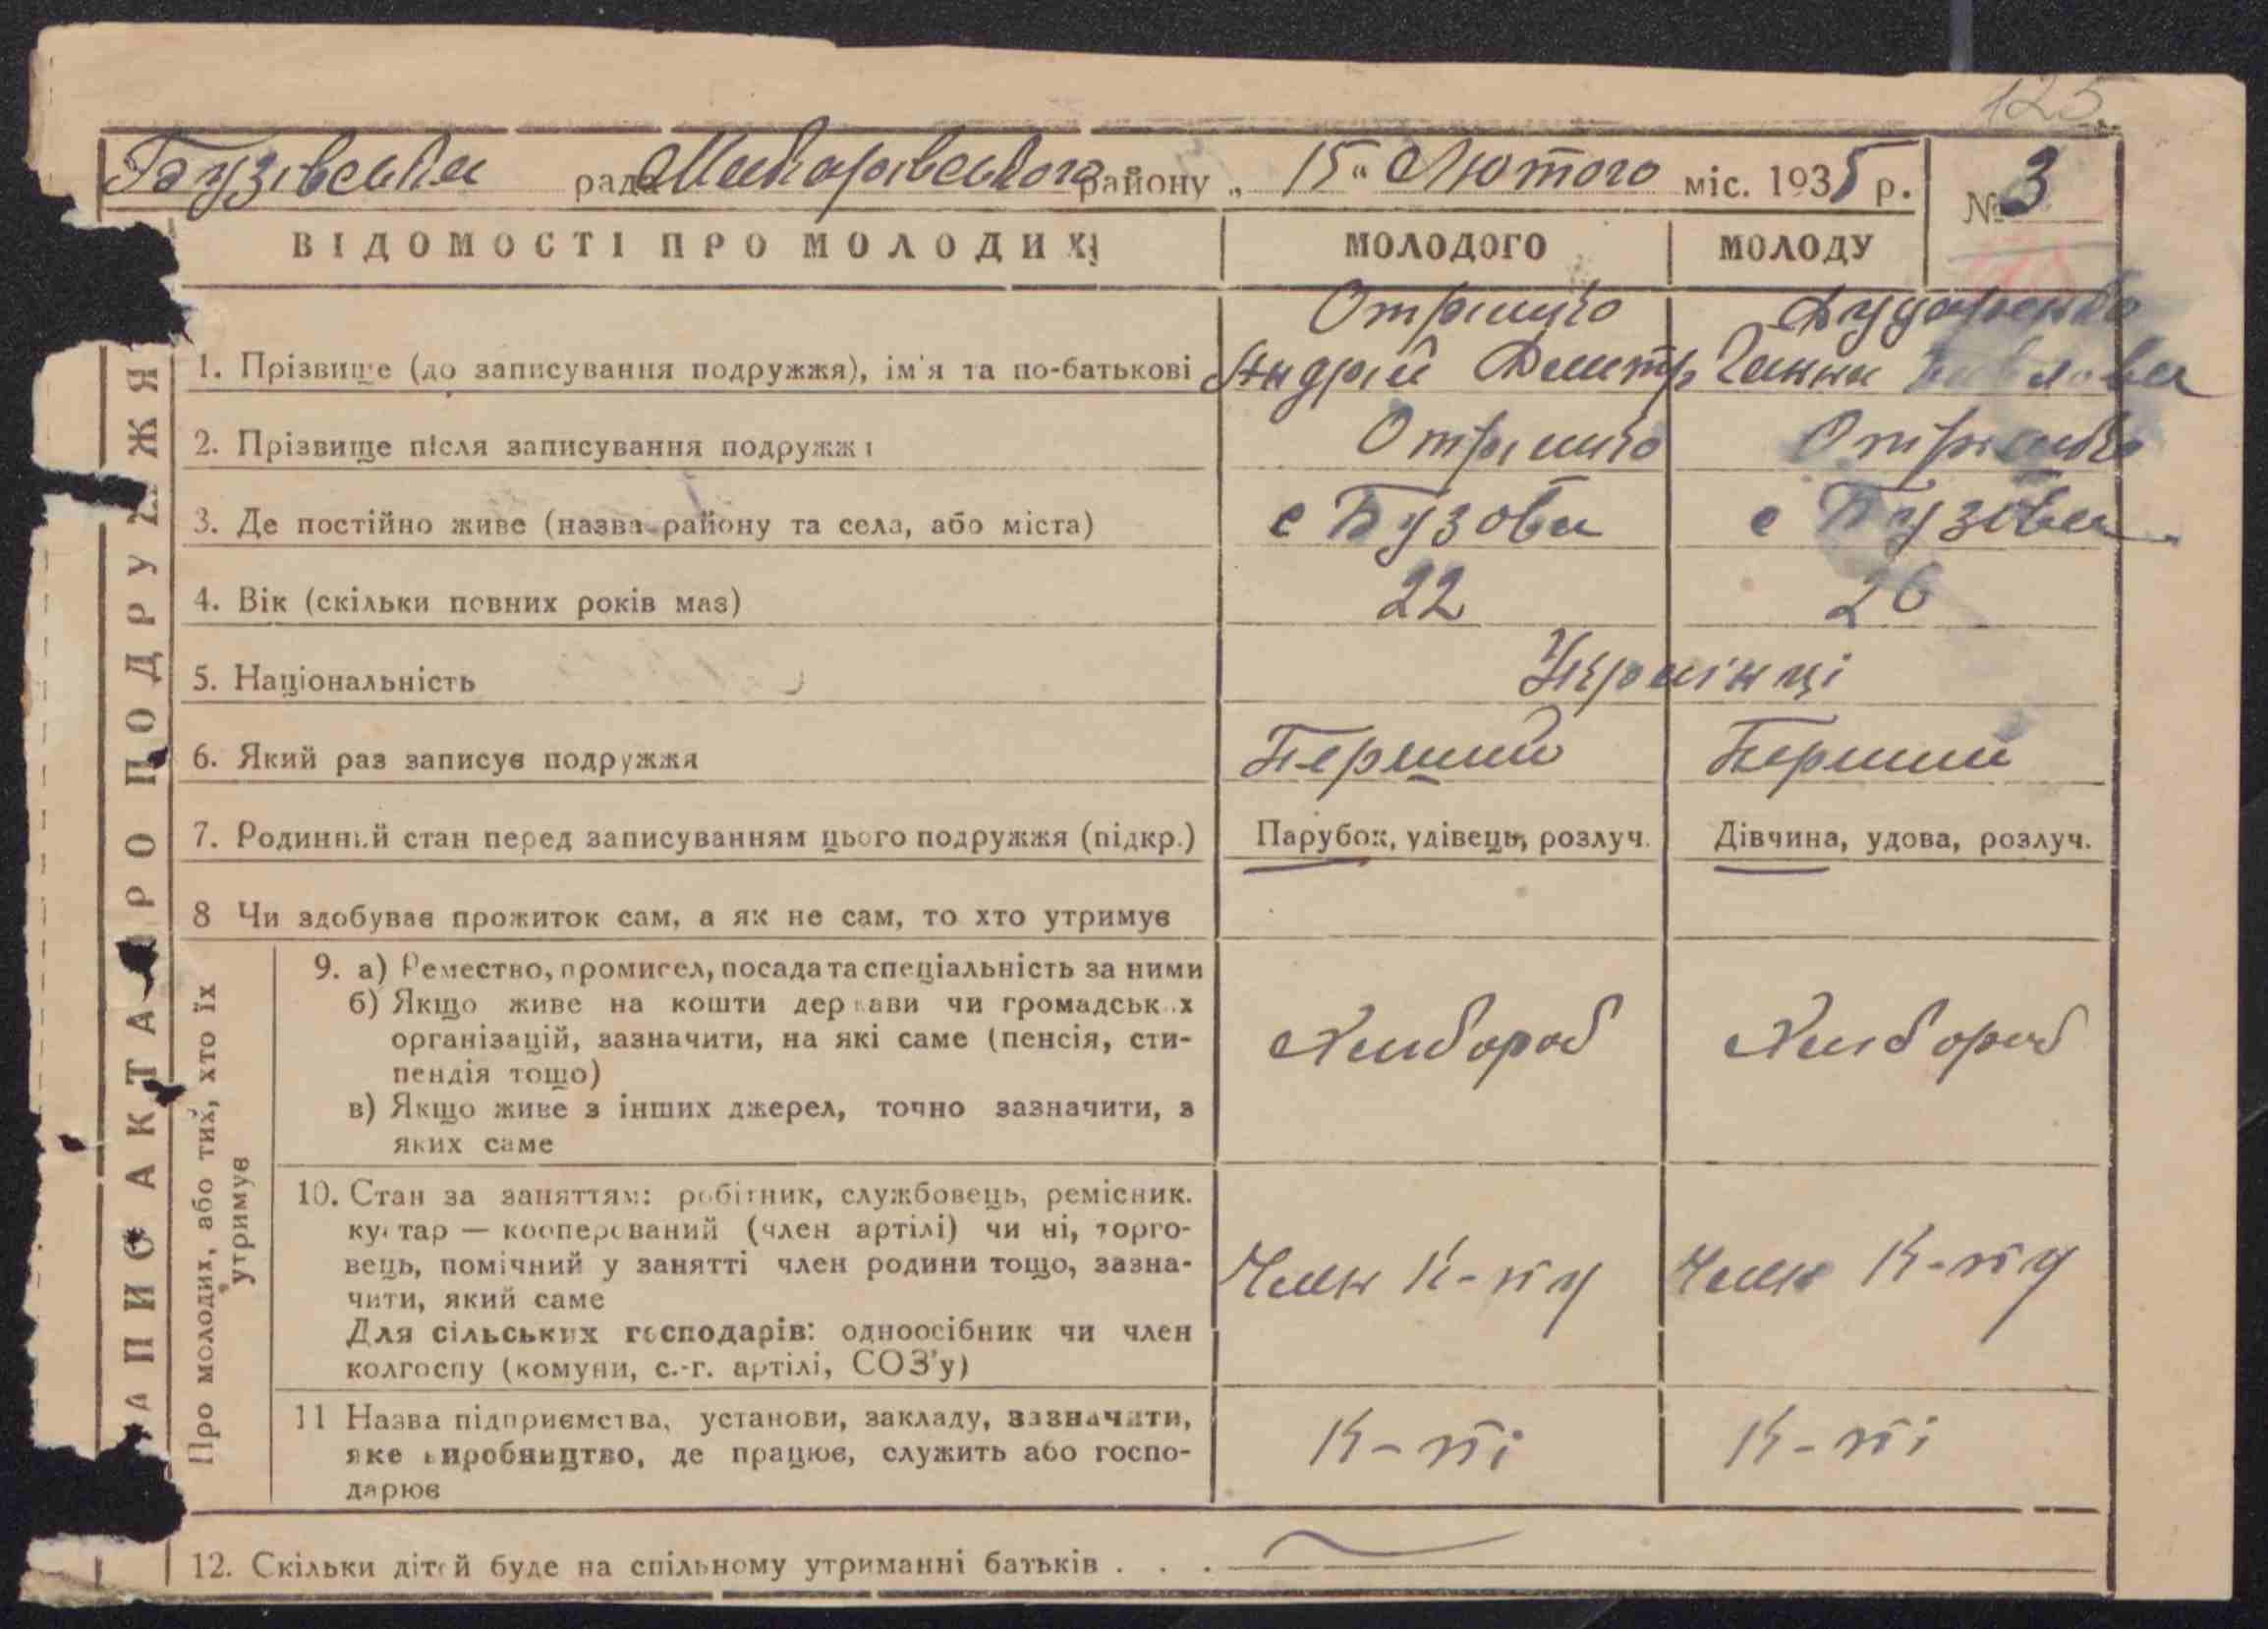 125
Бузівська рада Макарівського району „ 15 “ Лютого міс. 1935 р. № 3
ЗАПИС АКТА ПРО ПОДРУЖЖЯ
ВІДОМОСТІ ПРО МОЛОДИХ МОЛОДОГО МОЛОДУ
1. Прізвище (до записування подружжя), ім'я та по-батькові
Андрій Дмитр Ганна Павлова
2. Прізвище після записування подружжя
3. Де постійно живе (назва району та села, або міста) с Бузова с Бузова
4. Вік (скільки повних років має) 22 26
5. Національність Українці
6. Який раз записує подружжя Перший Перший
7. Родинний стан перед записуванням цього подружжя (підкр.) Парубок, удівець, розлуч. Дівчина, удова, розлуч.
8 Чи здобуває прожиток сам, а як не сам, то хто утримує
Про молодих, або тих, хто їх
утримує
9. а) Ремество, промисел, посада та спеціальність за ними
б) Якщо живе на кошти держави чи громадських
організацій, зазначити, на які саме (пенсія, сти-
пендія тощо)
в) Якщо живе з інших джерел, точно зазначити, з
яких саме
Хлібороб Хлібороб
10. Стан за заняттям: робітник, службовець, ремісник.
кустар — кооперований (член артілі) чи ні, торго-
вець, помічний у занятті член родини тощо, зазна-
чити, який саме
Для сільських господарів: одноосібник чи член
колгоспу (комуни, с.-г. артілі, СОЗ'у)
Член К-пу Член К-пу
11 Назва підприємства, установи, закладу, зазначити,
яке виробництво, де працює, служить або госпо-
дарює
К-пі К-пі
12. Скільки дітей буде на спільному утриманні батьків . . .